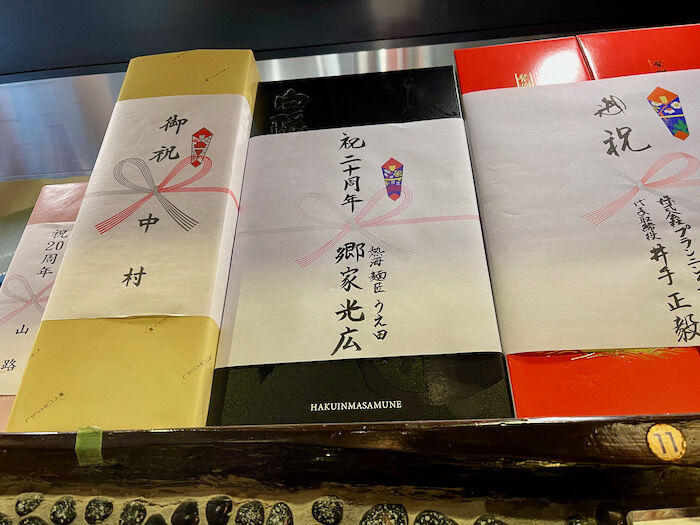 祝20周年
山路
御祝
中村
祝二十周年
熱海 麺匠 うえ田
郷家光広
HAKUINMASAMUNE
御祝
株式会社プランニ
代表取締役 井手正毅
11